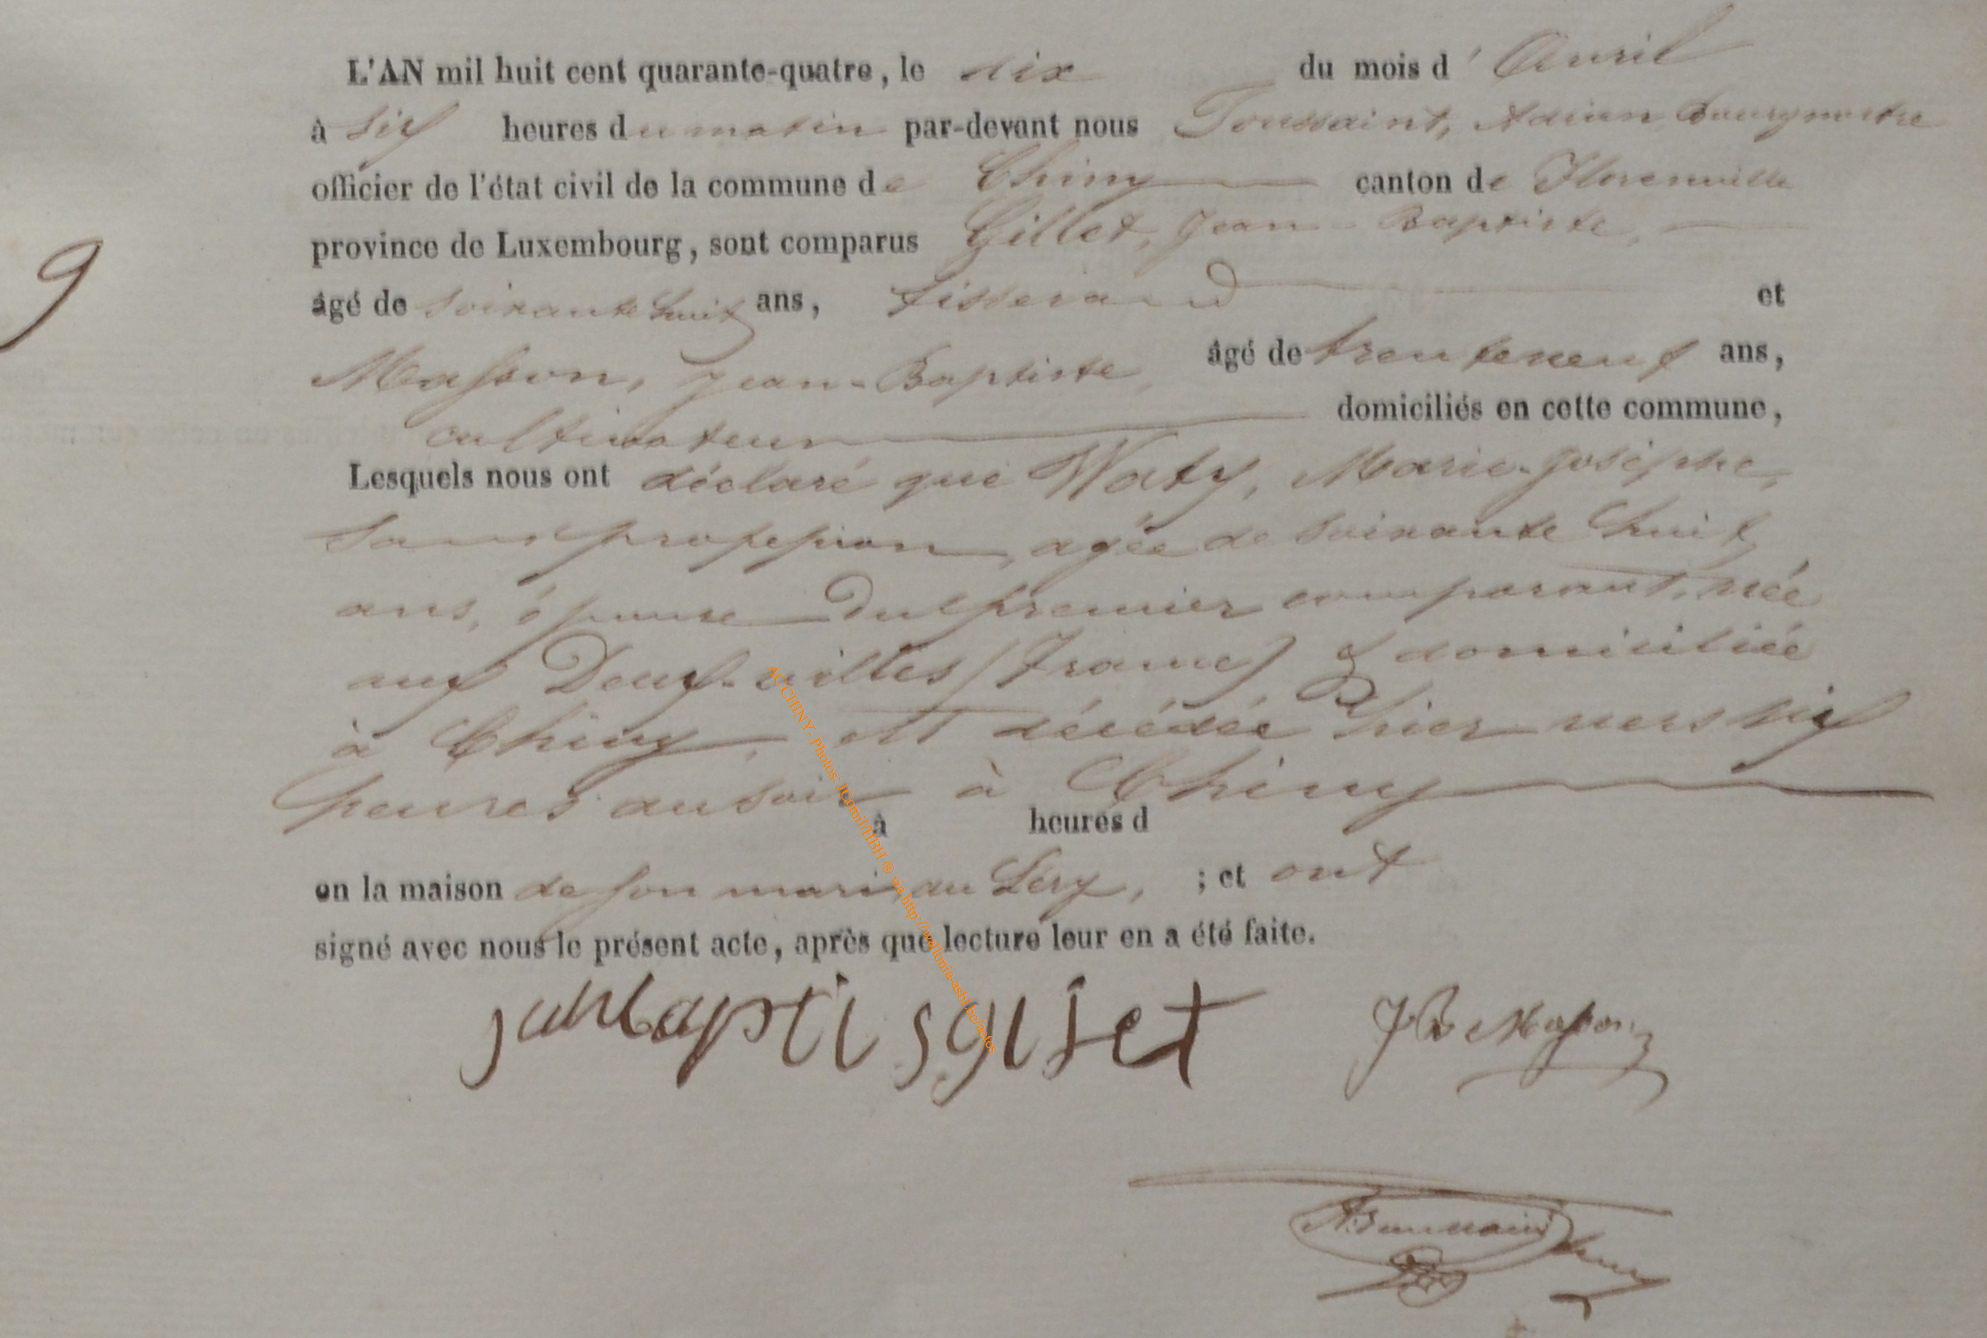 L'AN mil huit cent quarante-quatre, le dix du mois d'Avril
à six heures du matin par-devant nous Toussaint, Adrien Bourgmestre
officier de l'état civil de la commune de Chiny canton de Florenville
province de Luxembourg, sont comparus Gillet, Jean-Baptiste,
âgé de soixante huit ans, tisserand et
Masson, Jean-Baptiste, âgé de trente neuf ans,
cultivateur domiciliés en cette commune,
Lesquels nous ont déclaré que Waty, Marie-Josèphe,
sans profession, agée de soixante huit
ans, épouse du premier comparant, née
aux Deux-villes (France) & domiciliée
à Chiny, est décédée hier vers six
heures du soir à Chiny
à heures d
en la maison de son mari, au Lery, ; et ont
signé avec nous le présent acte, après que lecture leur en a été faite.
9
JB Masson
A. Toussaint